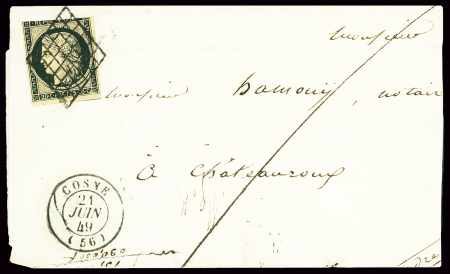 REPUB
20 C
monsieur
monsieur hamouy notair
à châteauroux
COSNE
21
JUIN
49
(56)